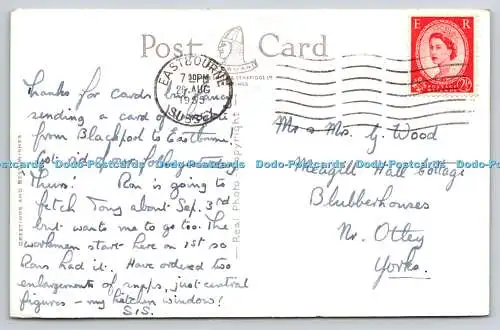 Post Card
EASTBOURNE
7 30PM
AUG
SUSSEX
E R
Thanks for cards
sending a card of
from Blackpool to Eastbourne.
Got
Thurs! Ron is going to
fetch Tony about Sep. 3rd
but wants me to go too. The
workmen start here on 1st so
Rons had it. Have ordered two
enlargements of snaps, just central
figures – my kitchen window!
SIS.
Mr & Mrs. G Wood
Meagill Hall Cottage
Blubberhouses
Nr. Otley
Yorks.
GREETINGS AND BEST WISHES
Real Photo
Dodo-Postcards Dodo-Postcards Dodo-Postcards Dodo-Postcards Dodo-Postcards Dodo-Postcards